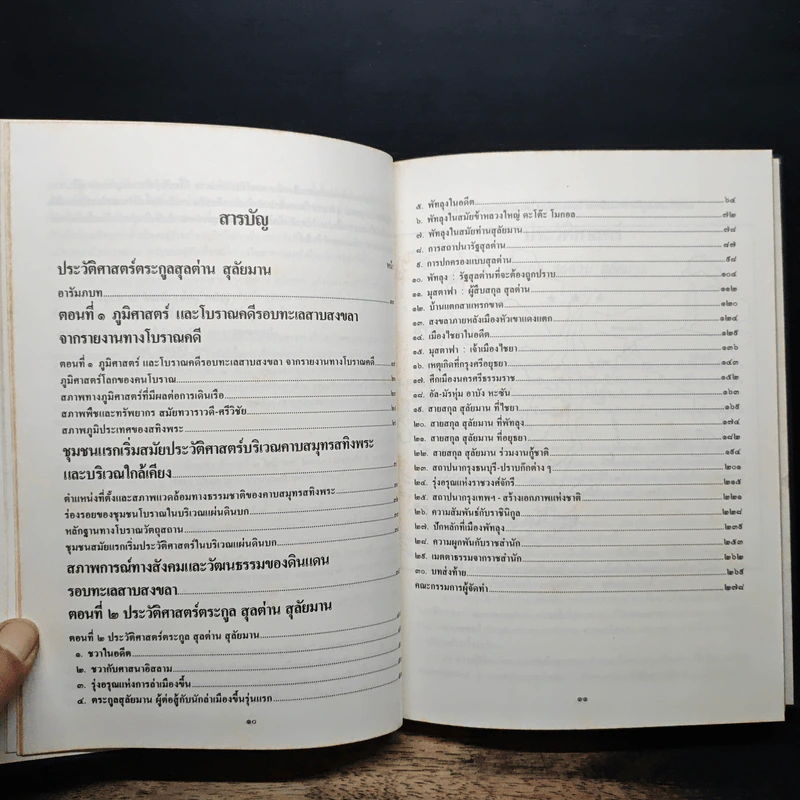 สารบัญ
ประวัติศาสตร์ตระกูลสุลต่าน สุลัยมาน
อารัมภบท
ตอนที่ ๑ ภูมิศาสตร์ และโบราณคดีรอบทะเลสาบสงขลา
จากรายงานทางโบราณคดี
ตอนที่ ๑ ภูมิศาสตร์ และโบราณคดีรอบทะเลสาบสงขลา จากรายงานทางโบราณคดี
ภูมิศาสตร์โลกของคนโบราณ
สภาพทางภูมิศาสตร์ที่มีผลต่อการเดินเรือ
สภาพพืชและทรัพยากร สมัยทวาราวดี-ศรีวิชัย
สภาพภูมิประเทศของสทิงพระ
ชุมชนแรกเริ่มสมัยประวัติศาสตร์บริเวณคาบสมุทรสทิงพระ
และบริเวณใกล้เคียง
ตำแหน่งที่ตั้งและสภาพแวดล้อมทางธรรมชาติของคาบสมุทรสทิงพระ
ร่องรอยของชุมชนโบราณในบริเวณแผ่นดินบก
หลักฐานทางโบราณวัตถุสถาน
ชุมชนสมัยแรกเริ่มประวัติศาสตร์ในบริเวณแผ่นดินบก
สภาพการณ์ทางสังคมและวัฒนธรรมของดินแดน
รอบทะเลสาบสงขลา
ตอนที่ ๒ ประวัติศาสตร์ตระกูล สุลต่าน สุลัยมาน
ตอนที่ ๒ ประวัติศาสตร์ตระกูล สุลต่าน สุลัยมาน
๑. ชวาในอดีต
๒. ชวากับศาสนาอิสลาม
๓. รุ่งอรุณแห่งการล่าเมืองขึ้น
๔. ตระกูลสุลัยมาน ผู้ต่อสู้กับนักล่าเมืองขึ้นรุ่นแรก
๑๐
๕. พัทลุงในอดีต ๖๔
๖. พัทลุงในสมัยข้าหลวงใหญ่ ดะโต๊ะ โมกอล ๗๒
๗. พัทลุงในสมัยท่านสุลัยมาน ๗๘
๘. การสถาปนารัฐสุลต่าน ๘๗
๙. การปกครองแบบสุลต่าน ๙๘
๑๐. พัทลุง : รัฐสุลต่านที่จะต้องถูกปราบ ๑๐๔
๑๑. มุสตาฟา : ผู้สืบสกุล สุลต่าน ๑๑๒
๑๒. บ้านแตกสาแหรกขาด ๑๒๐
๑๓. สงขลาภายหลังเมืองหัวเขาแดงแตก ๑๒๔
๑๔. เมืองไชยาในอดีต ๑๒๕
๑๕. มุสตาฟา : เจ้าเมืองไชยา ๑๓๖
๑๖. เหตุเกิดที่กรุงศรีอยุธยา ๑๔๓
๑๗. ศึกเมืองนครศรีธรรมราช ๑๕๒
๑๘. อัล-มัรหุ่ม อาบัง หะซัน ๑๖๓
๑๙. สายสกุล สุลัยมาน ที่ไชยา ๑๖๕
๒๐. สายสกุล สุลัยมาน ที่พัทลุง ๑๗๔
๒๑. สายสกุล สุลัยมาน ที่อยุธยา ๑๘๒
๒๒. สายสกุล สุลัยมาน ร่วมงานกู้ชาติ ๑๙๔
๒๓. สถาปนากรุงธนบุรี-ปราบก๊กต่าง ๆ ๒๐๑
๒๔. รุ่งอรุณแห่งราชวงศ์จักรี ๒๑๕
๒๕. สถาปนากรุงเทพฯ - สร้างเอกภาพแห่งชาติ ๒๒๑
๒๖. ความสัมพันธ์กับราชินิกูล ๒๒๘
๒๗. ปักหลักที่เมืองพัทลุง ๒๓๙
๒๘. ความผูกพันกับราชสำนัก ๒๕๓
๒๙. เมตตาธรรมจากราชสำนัก ๒๖๒
๓๐. บทส่งท้าย ๒๖๕
คณะกรรมการผู้จัดทำ ๒๗๘
๑๑